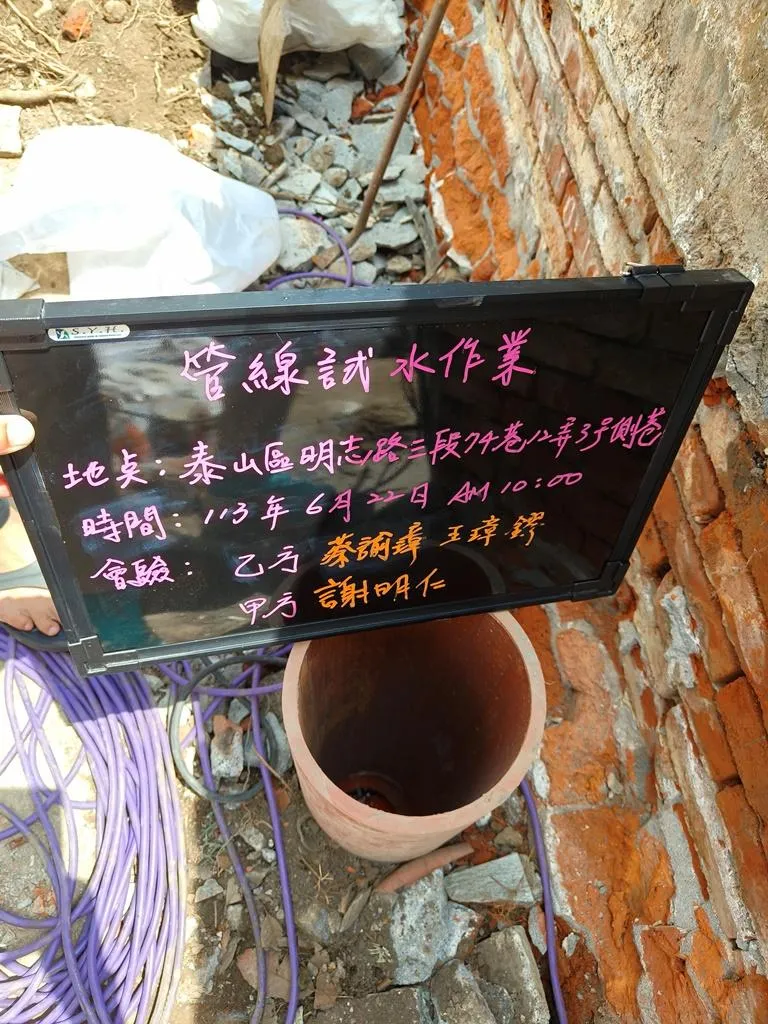 S.Y.H.
管線試水作業
地点：泰山區明志路三段74巷12弄3号側巷
時間：113年6月22日 AM 10:00
會驗：乙方 蔡諭璋 王璋鏐
甲方 謝明仁